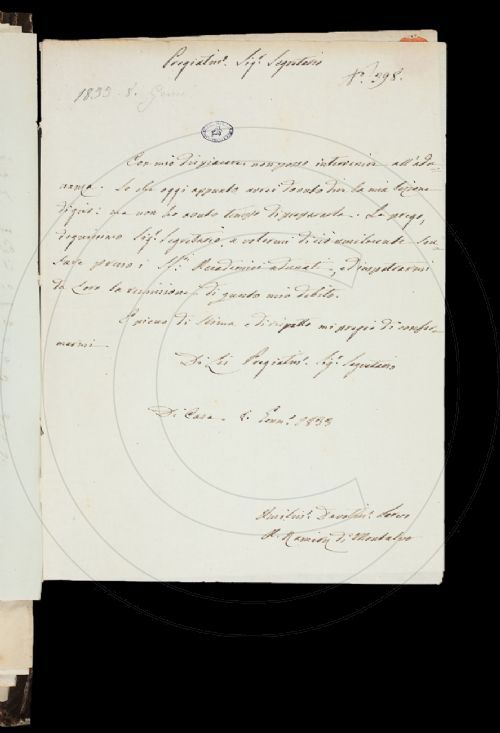 Pregiatmo. Sigr. Segretario
No. 398.
1833. 8. Genn
Con mio dispiacere non posso intervenire all'adu-
nanza. So che oggi appunto avrei dovuto dir la mia Lezione
di giro: ma non ho avuto tempo di prepararla. La prego,
Sigr. Segretario, a volermi di ciò umilmente Scu-
sare presso i Accademici adunati, ed impetrarmi
da Loro la remissione di questo mio debito.
E pieno di Stima, e di rispetto mi pregio di confer-
marmi
Di Lei Pregiatmo. Sigr. Segretario
Di Casa 8. Gennо. 1833
Umilismo. Devotismo. Servo
A. Ramirez di Montalvo